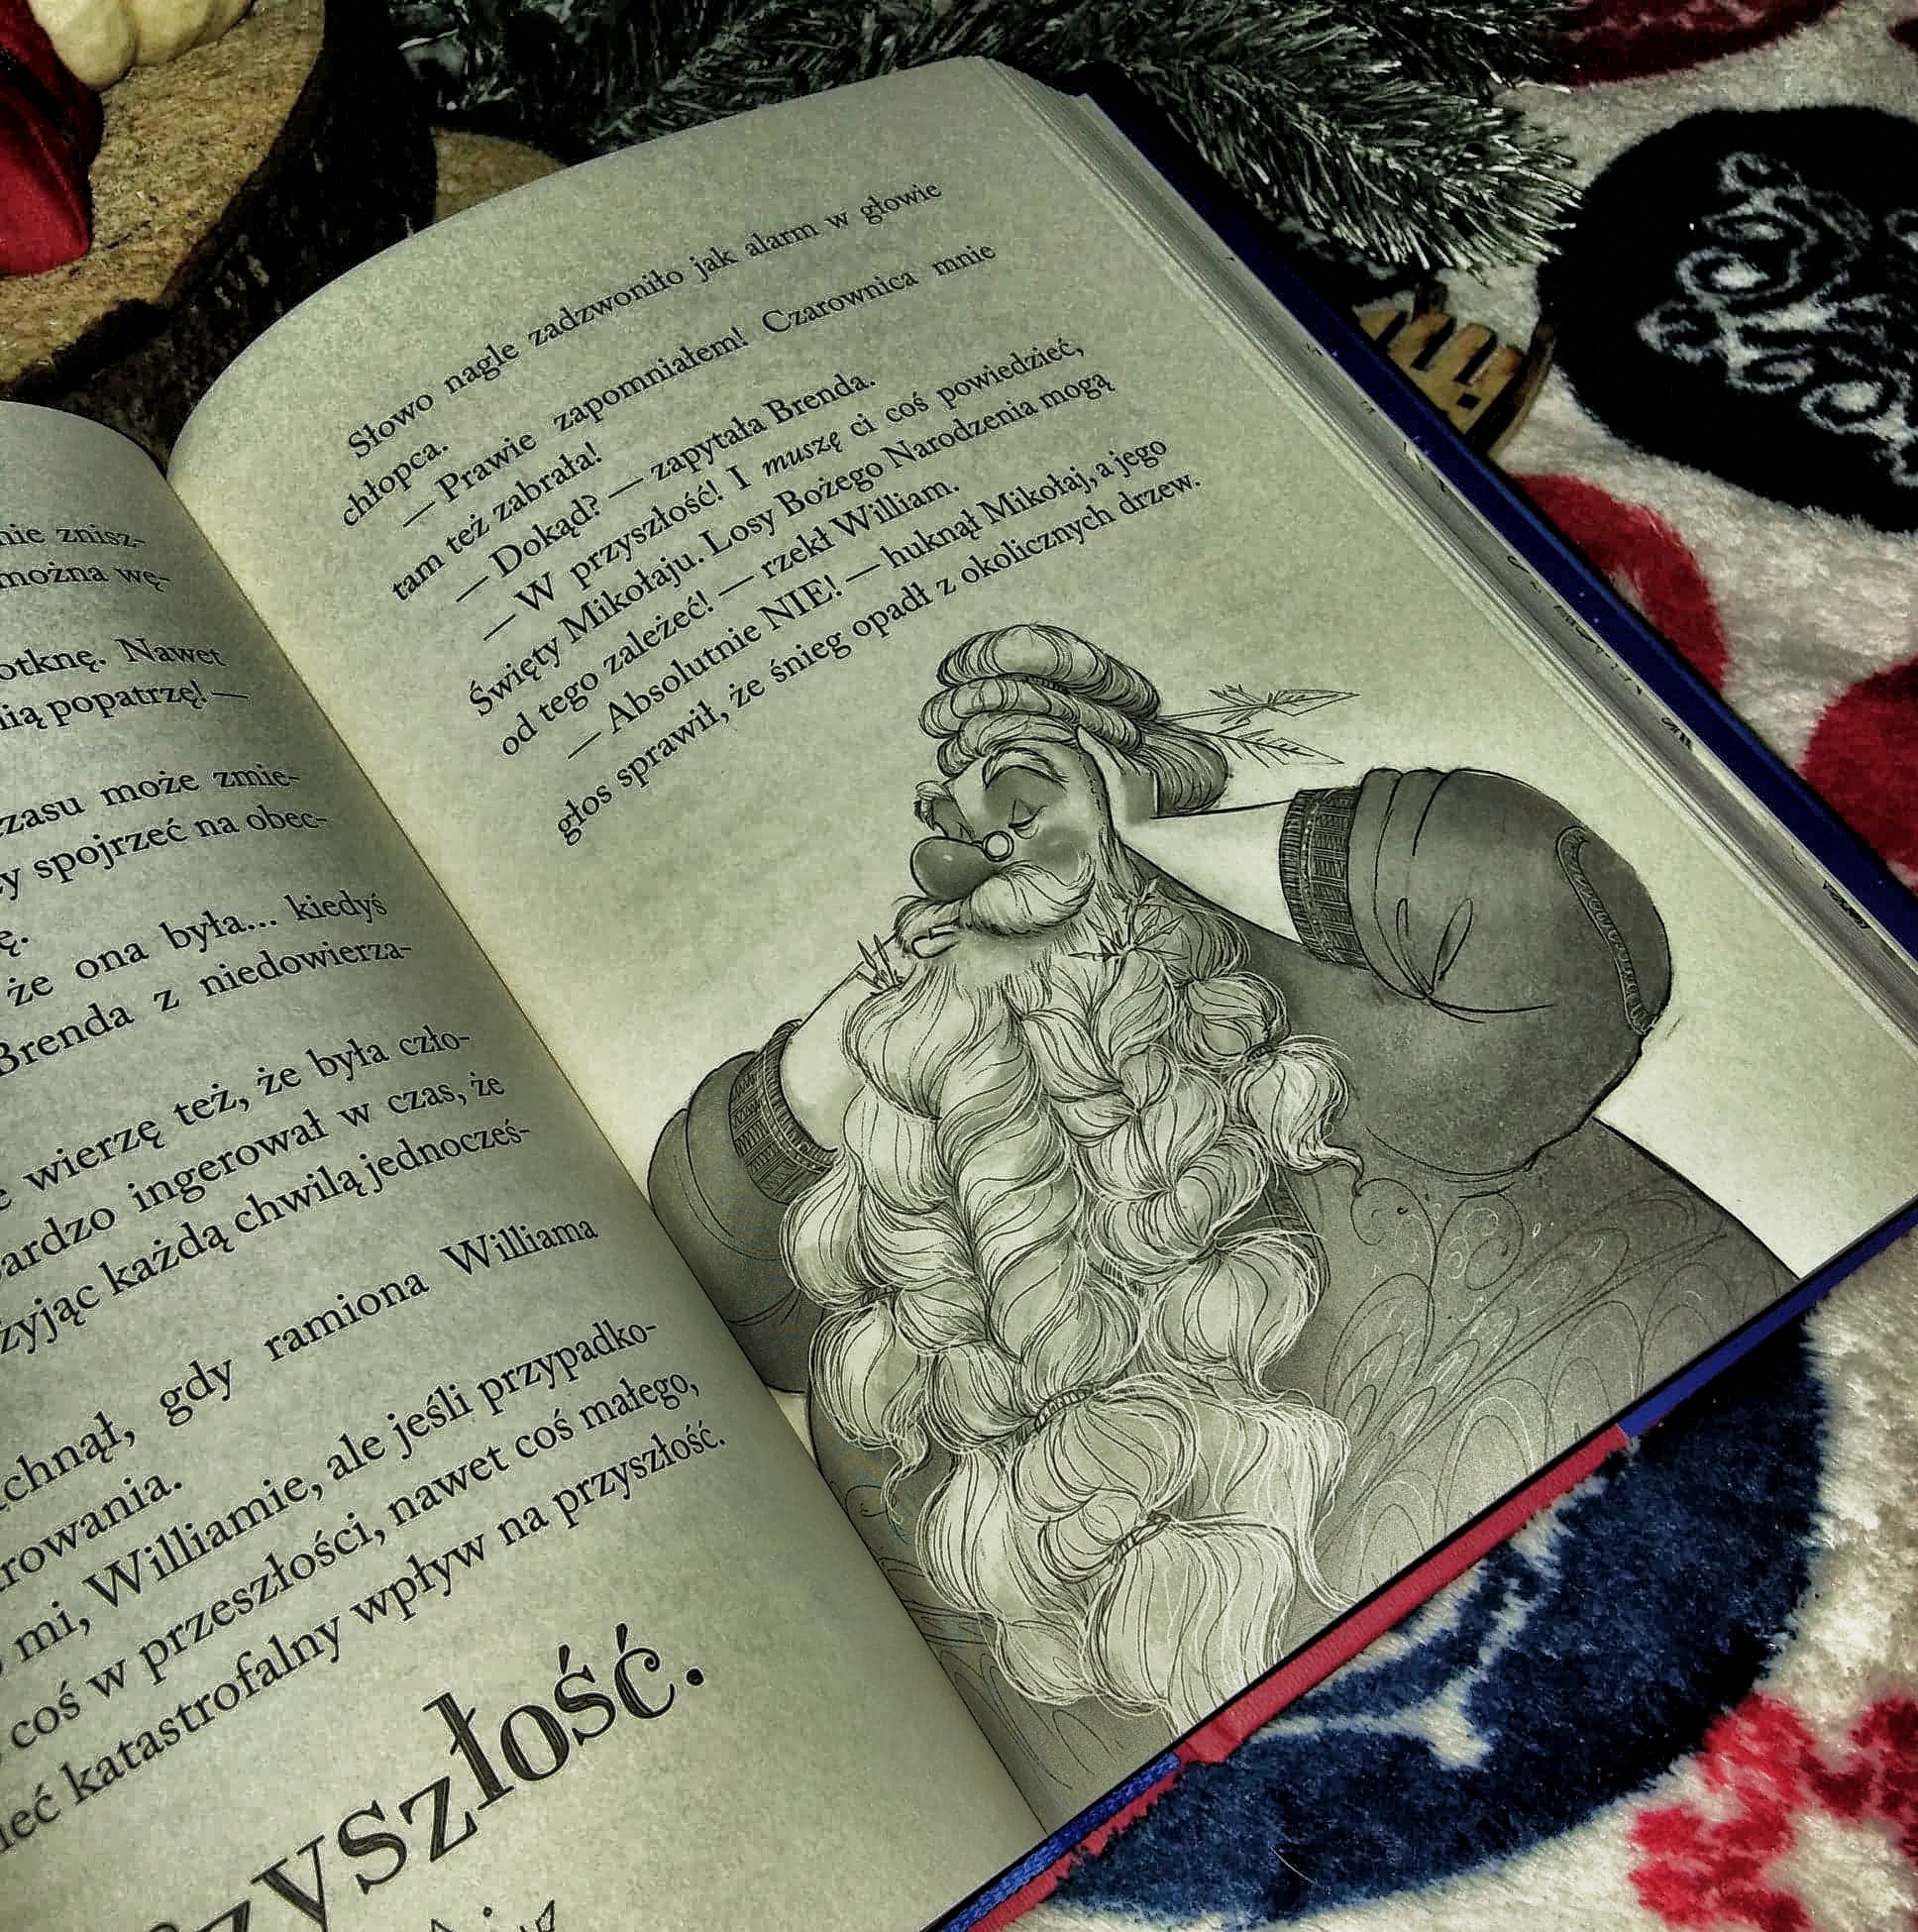 nie znisz-
można wę-
Nawet
nią popatrzę! —
czasu może zmie-
spojrzeć na obec-
że ona była... kiedyś
Brenda z niedowierza-
wierzę też, że była czło-
ingerował w czas, że
każdą chwilą jednocześ-
gdy ramiona Williama
mi, Williamie, ale jeśli przypadko-
coś w przeszłości, nawet coś małego,
katastrofalny wpływ na przyszłość.
Słowo nagle zadzwoniło jak alarm w głowie
chłopca.
— Prawie zapomniałem! Czarownica mnie
tam też zabrała!
— Dokąd? — zapytała Brenda.
— W przyszłość! I muszę ci coś powiedzieć,
Święty Mikołaju. Losy Bożego Narodzenia mogą
od tego zależeć! — rzekł William.
— Absolutnie NIE! — huknął Mikołaj, a jego
głos sprawił, że śnieg opadł z okolicznych drzew.